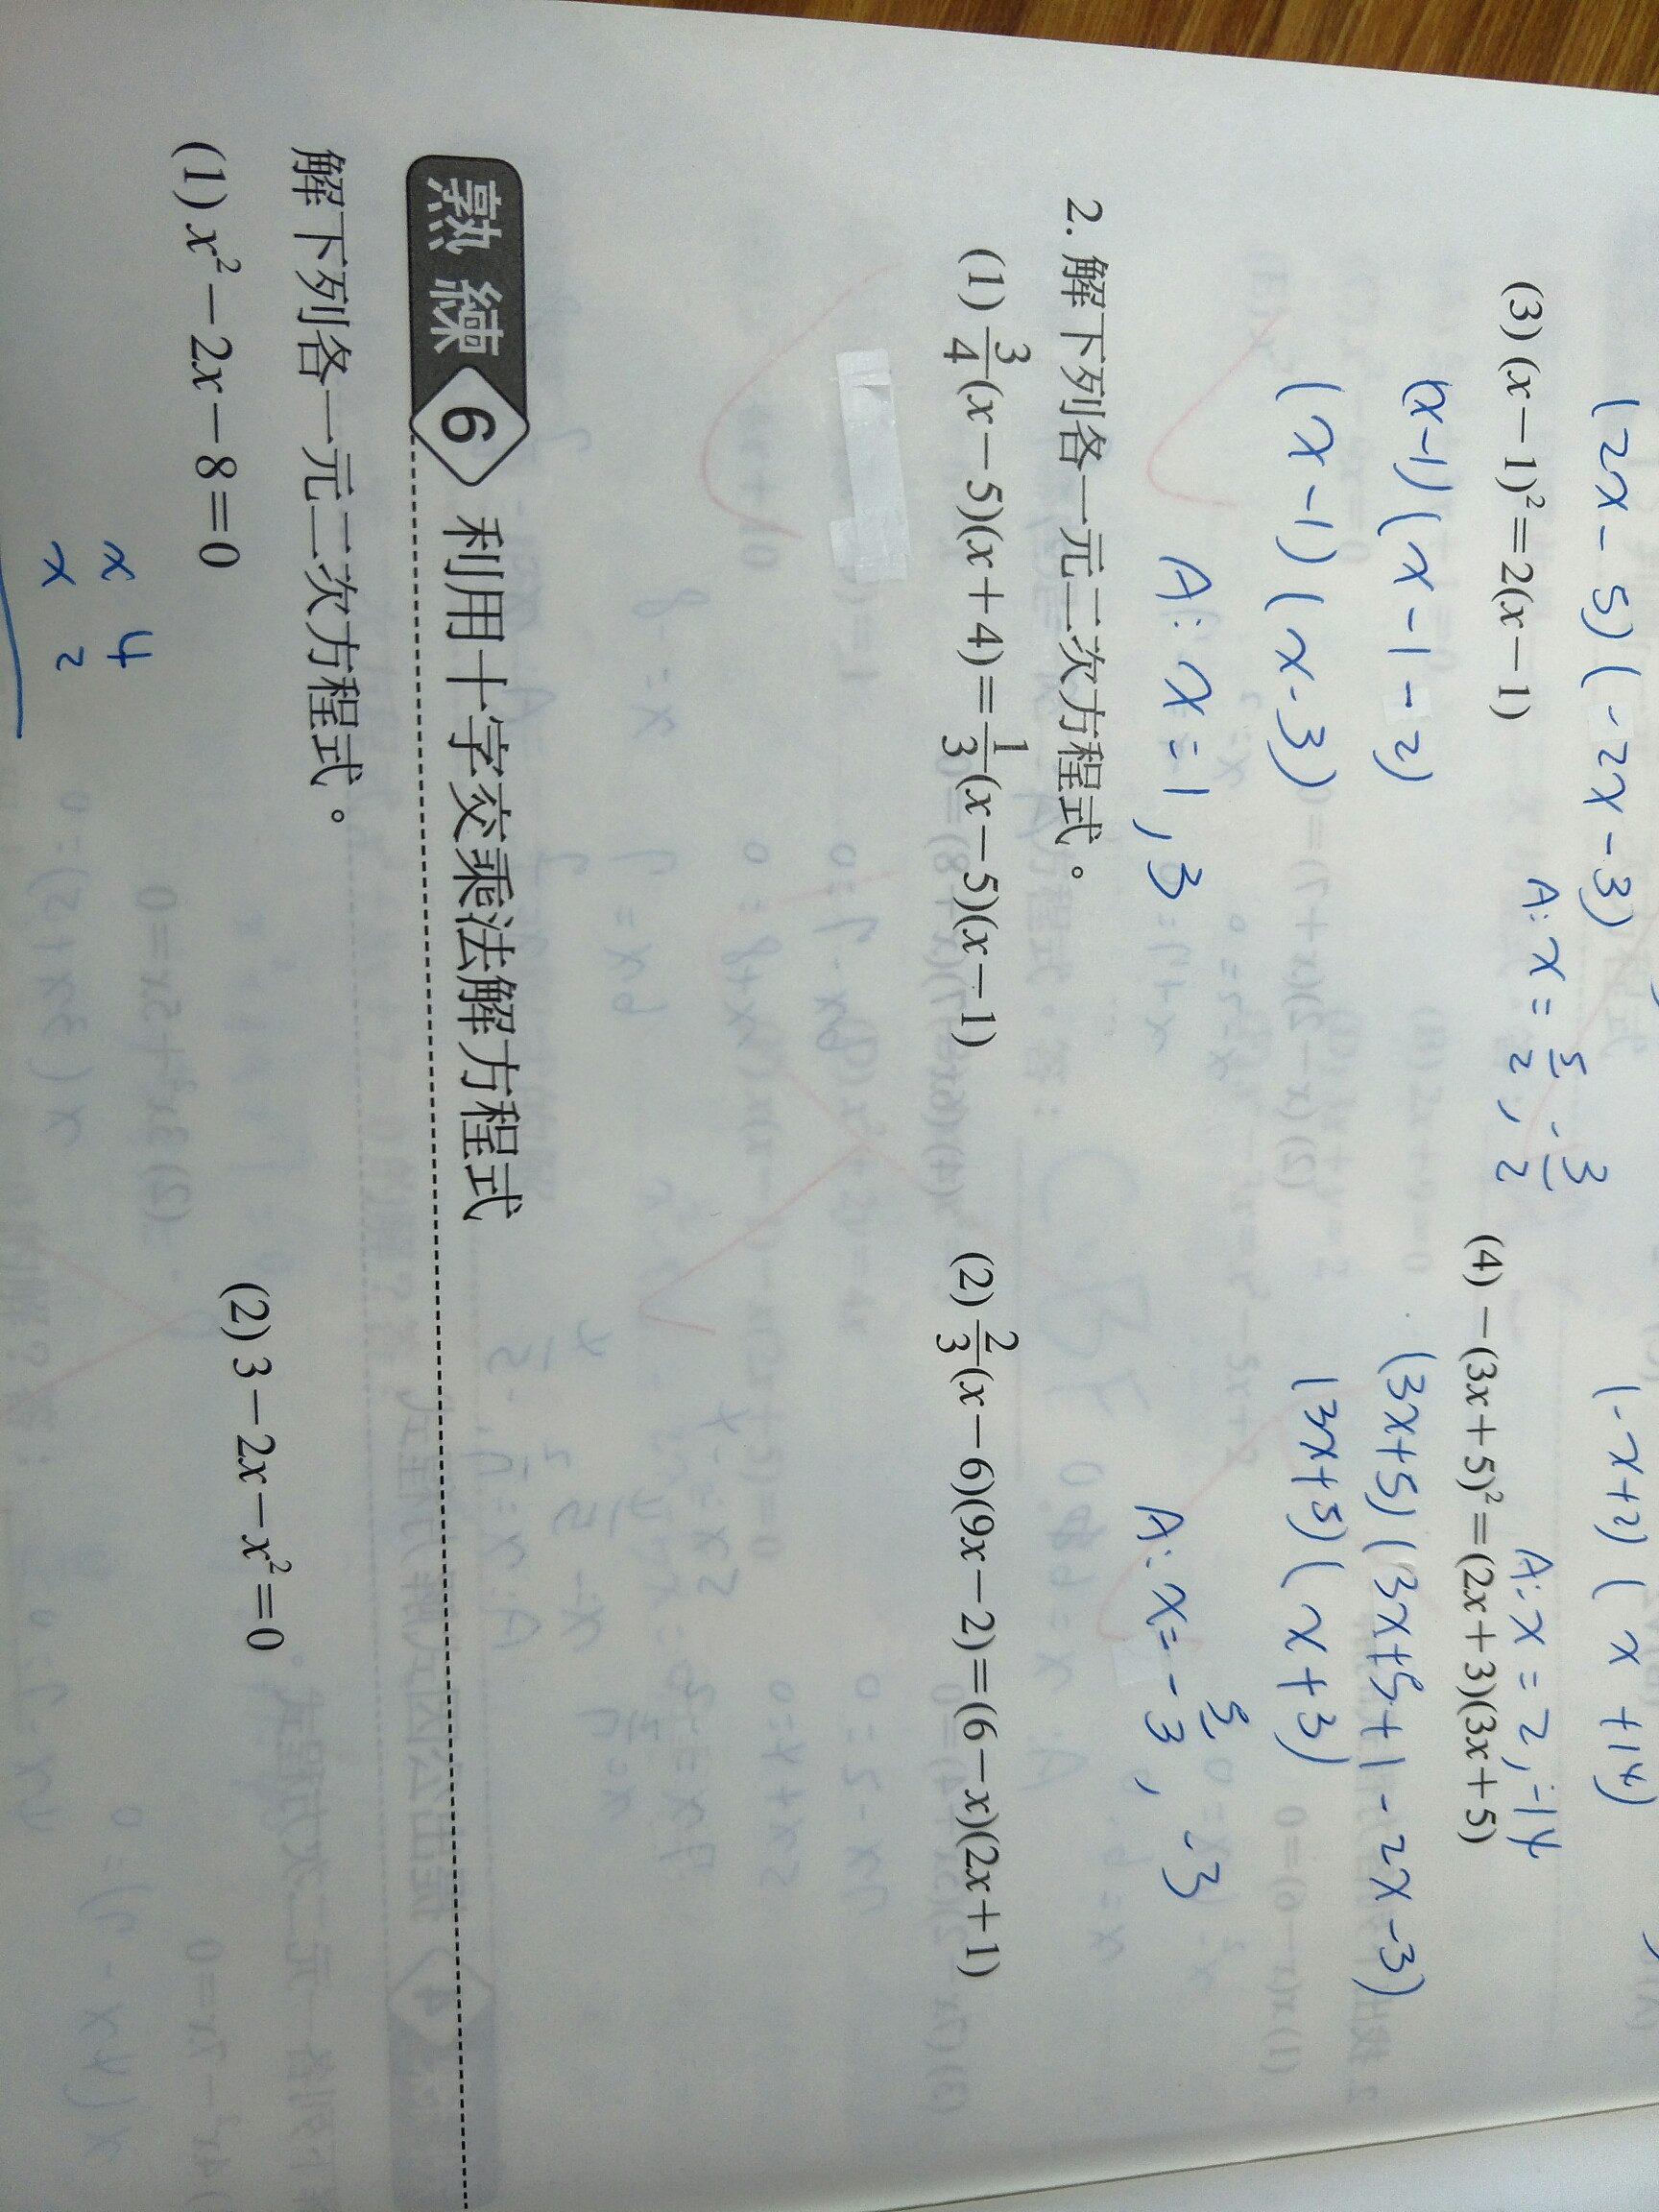 (2x-5)(-2x-3)
(-x+2)(x+14)
A:x=5/2,-3/2
A:x=2,-14
(3) (x-1)²=2(x-1)
(4) -(3x+5)²=(2x+3)(3x+5)
(x-1)(x-1-2)
(x-1)(x-3)
A:x=1,3
(3x+5)(3x+5+1-2x-3)
(3x+5)(x+3)
A:x=-5/3,-3
2. 解下列各一元二次方程式。
(1) 3/4(x-5)(x+4)=1/3(x-5)(x-1)
(2) 2/3(x-6)(9x-2)=(6-x)(2x+1)
熟練 6 利用十字交乘法解方程式
解下列各一元二次方程式。
(1) x²-2x-8=0
(2) 3-2x-x²=0
x 4
x 2